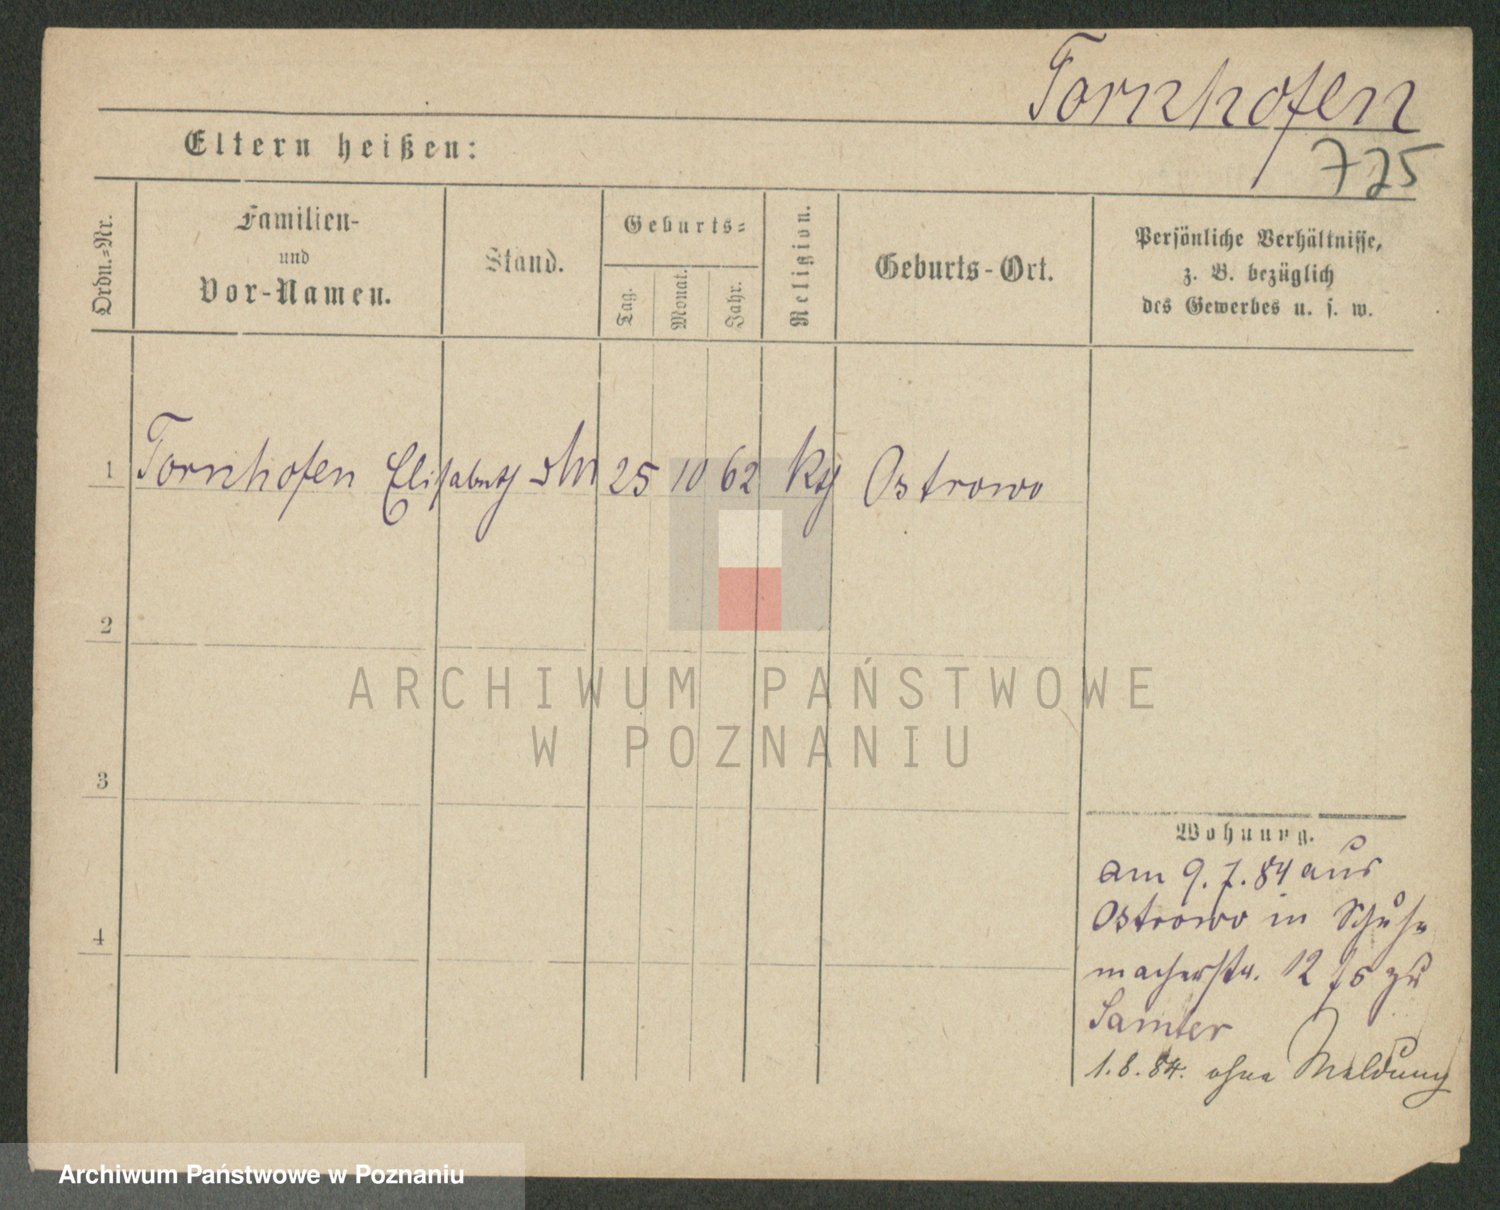 Tornhofen
725
Eltern heißen:
Ordn.=Nr.
Familien-
und
Vor-Namen.
Stand.
Geburts=
Tag.
Monat.
Jahr.
Religion.
Geburts-Ort.
Persönliche Verhältnisse,
z. B. bezüglich
des Gewerbes u. s. w.
1 Tornhofen Elisabeth 25 10 62 Kth Ostrowo
2
3
4
ARCHIWUM PAŃSTWOWE
W POZNANIU
Wohnung.
am 9. 7. 84 aus
Ostrowo in Schuh
macherstr. 12 zu
Samter
1. 8. 84. ohne Meldung
Archiwum Państwowe w Poznaniu